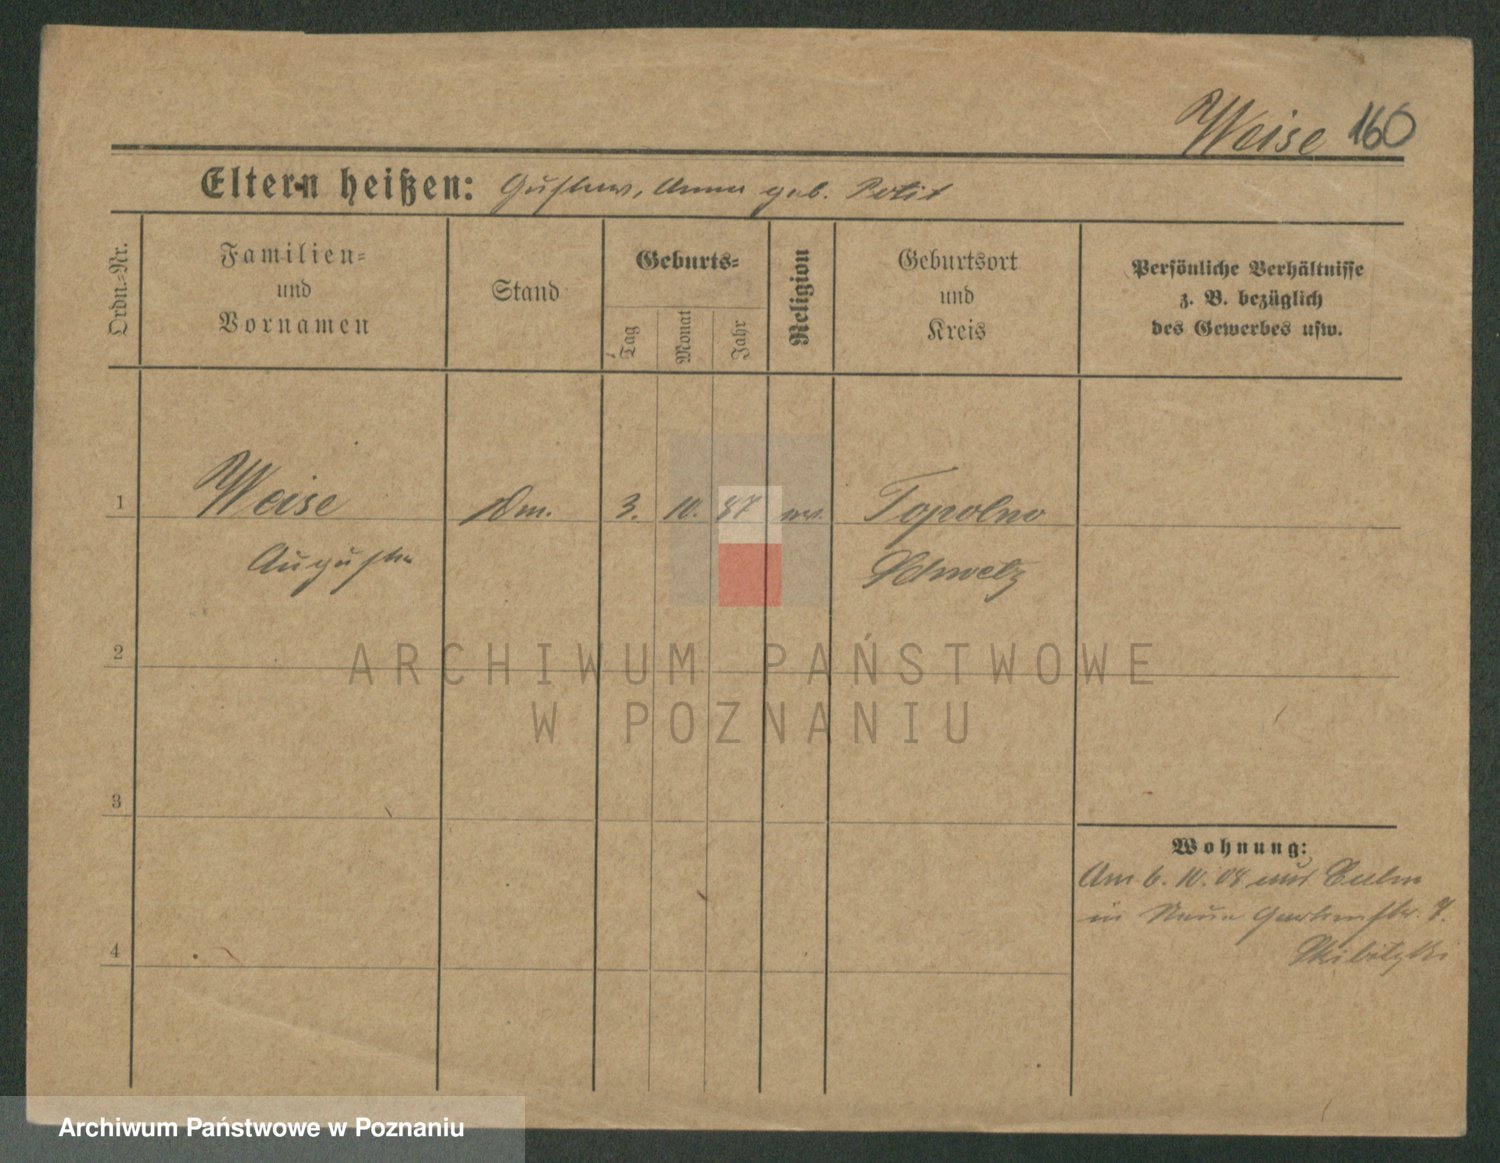 Weise 160
Eltern heißen: Gustav, Anna geb.
Ordn.-Nr.
Familien-
und
Vornamen
Stand
Geburts-
Tag
Monat
Jahr
Religion
Geburtsort
und
Kreis
Persönliche Verhältnisse
z. B. bezüglich
des Gewerbes usw.
1 Weise 3. 10. 87 ev. Topolno
Auguste Schwetz
2
3
4
Wohnung:
Am 6. 10. 08 aus Culm
in Neue Gartenstr. 7.
ARCHIWUM PAŃSTWOWE
W POZNANIU
Archiwum Państwowe w Poznaniu